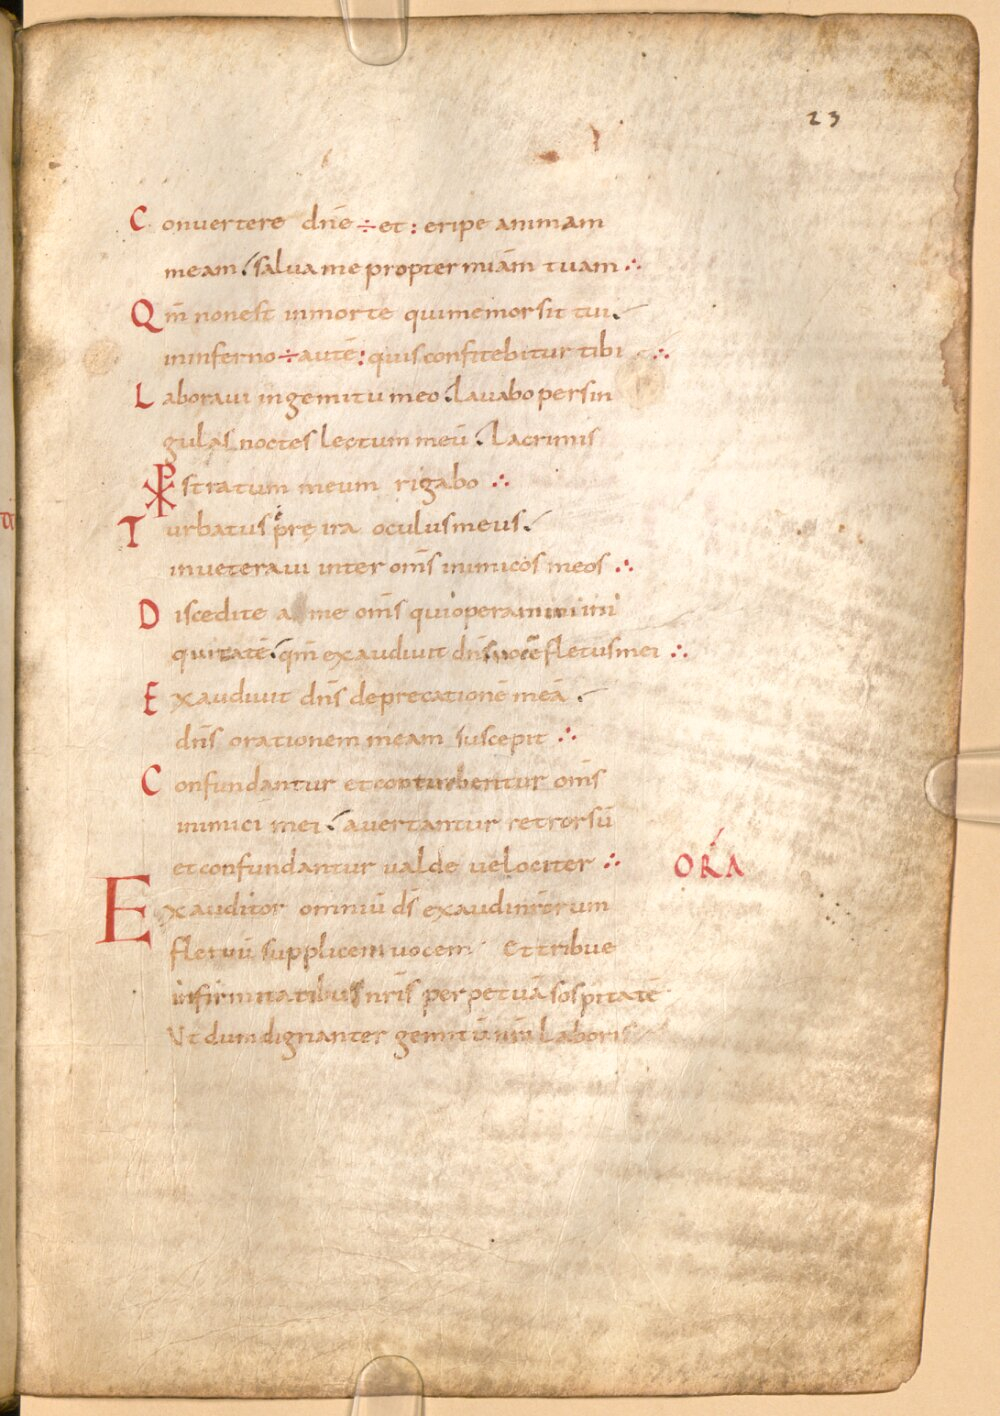 23
Conuertere dn̄e ÷ et : eripe animam
meam salua me propter miām tuam ∴
Qm̄ non est in morte qui memor sit tui
in inferno ÷ autē : quis confitebitur tibi ∴
Laboraui in gemitu meo lauabo per sin
gulas noctes lectum meū lacrimis
stratum meum rigabo ∴
Turbatus ē prę ira oculus meus
inueteraui inter om̄s inimicos meos ∴
Discedite a me om̄s qui operamini ini
quitatē qm̄ exaudiuit dn̄s uocē fletus mei ∴
Exaudiuit dn̄s deprecationē meā
dn̄s orationem meam suscepit ∴
Confundantur et conturbentur om̄s
inimici mei auertantur retrorsū
et confundantur ualde uelociter ∴
ORA
Exauditor omniū ds̄ exaudi nr̄orum
fletuū supplicem uocem Et tribue
infirmitatibus nr̄is perpetuā sospitatē
Ut dum dignanter gemitū nr̄i laboris